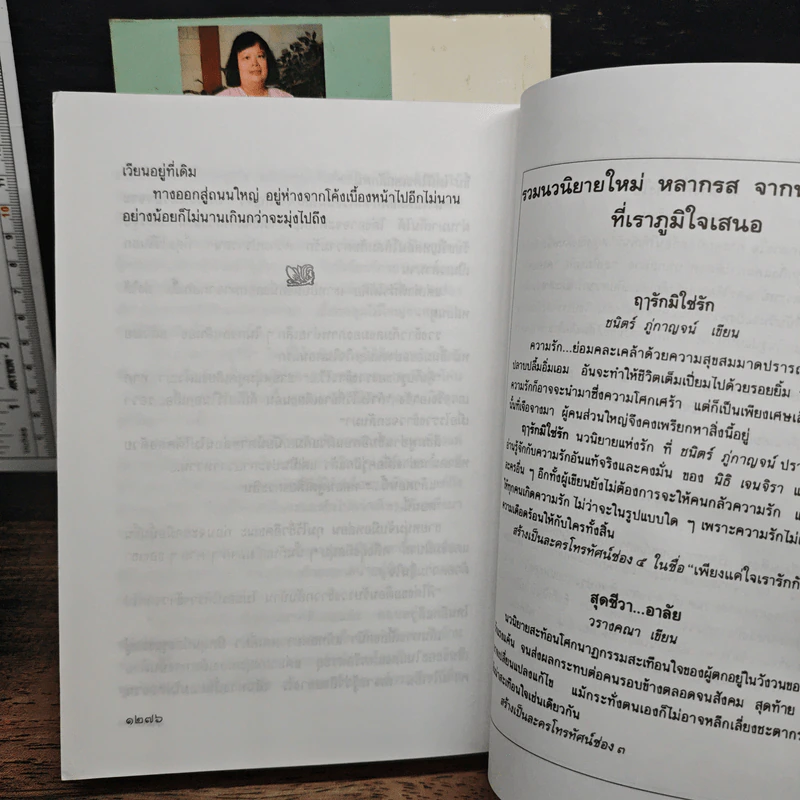 เวียนอยู่ที่เดิม
ทางออกสู่ถนนใหญ่ อยู่ห่างจากโค้งเบื้องหน้าไปอีกไม่นาน
อย่างน้อยก็ไม่นานเกินกว่าจะมุ่งไปถึง
๑๒๗๖
รวมนวนิยายใหม่ หลากรส จาก
ที่เราภูมิใจเสนอ
ฤารักมิใช่รัก
ชนิตร์ ภู่กาญจน์ เขียน
ความรัก...ย่อมคละเคล้าด้วยความสุขสมมาดปรารถ
ปลาบปลื้มอิ่มเอม อันจะทำให้ชีวิตเต็มเปี่ยมไปด้วยรอยยิ้ม
ความรักก็อาจจะนำมาซึ่งความโศกเศร้า แต่ก็เป็นเพียงเศษเสี้
นั้นที่เจือจางมา ผู้คนส่วนใหญ่จึงคงเพรียกหาสิ่งนี้อยู่
ฤารักมิใช่รัก นวนิยายแห่งรัก ที่ ชนิตร์ ภู่กาญจน์ ปรา
อ่านรู้จักกับความรักอันแท้จริงและคงมั่น ของ นิธิ เจนจิรา แ
ละครอื่น ๆ อีกทั้งผู้เขียนยังไม่ต้องการจะให้คนกลัวความรัก แ
ให้ทุกคนเกิดความรัก ไม่ว่าจะในรูปแบบใด ๆ เพราะความรักไม่เ
ความเดือดร้อนให้กับใครทั้งสิ้น
สร้างเป็นละครโทรทัศน์ช่อง ๕ ในชื่อ "เพียงแค่ใจเรารักกั
สุดชีวา...อาลัย
วรางคณา เขียน
นวนิยายสะท้อนโศกนาฏกรรมสะเทือนใจของผู้ตกอยู่ในวังวนขอ
จนส่งผลกระทบต่อคนรอบข้างตลอดจนสังคม สุดท้าย
เปลี่ยนแปลงแก้ไข แม้กระทั่งตนเองก็ไม่อาจหลีกเลี่ยงชะตากร
น่าสะเทือนใจเช่นเดียวกัน
สร้างเป็นละครโทรทัศน์ช่อง ๓